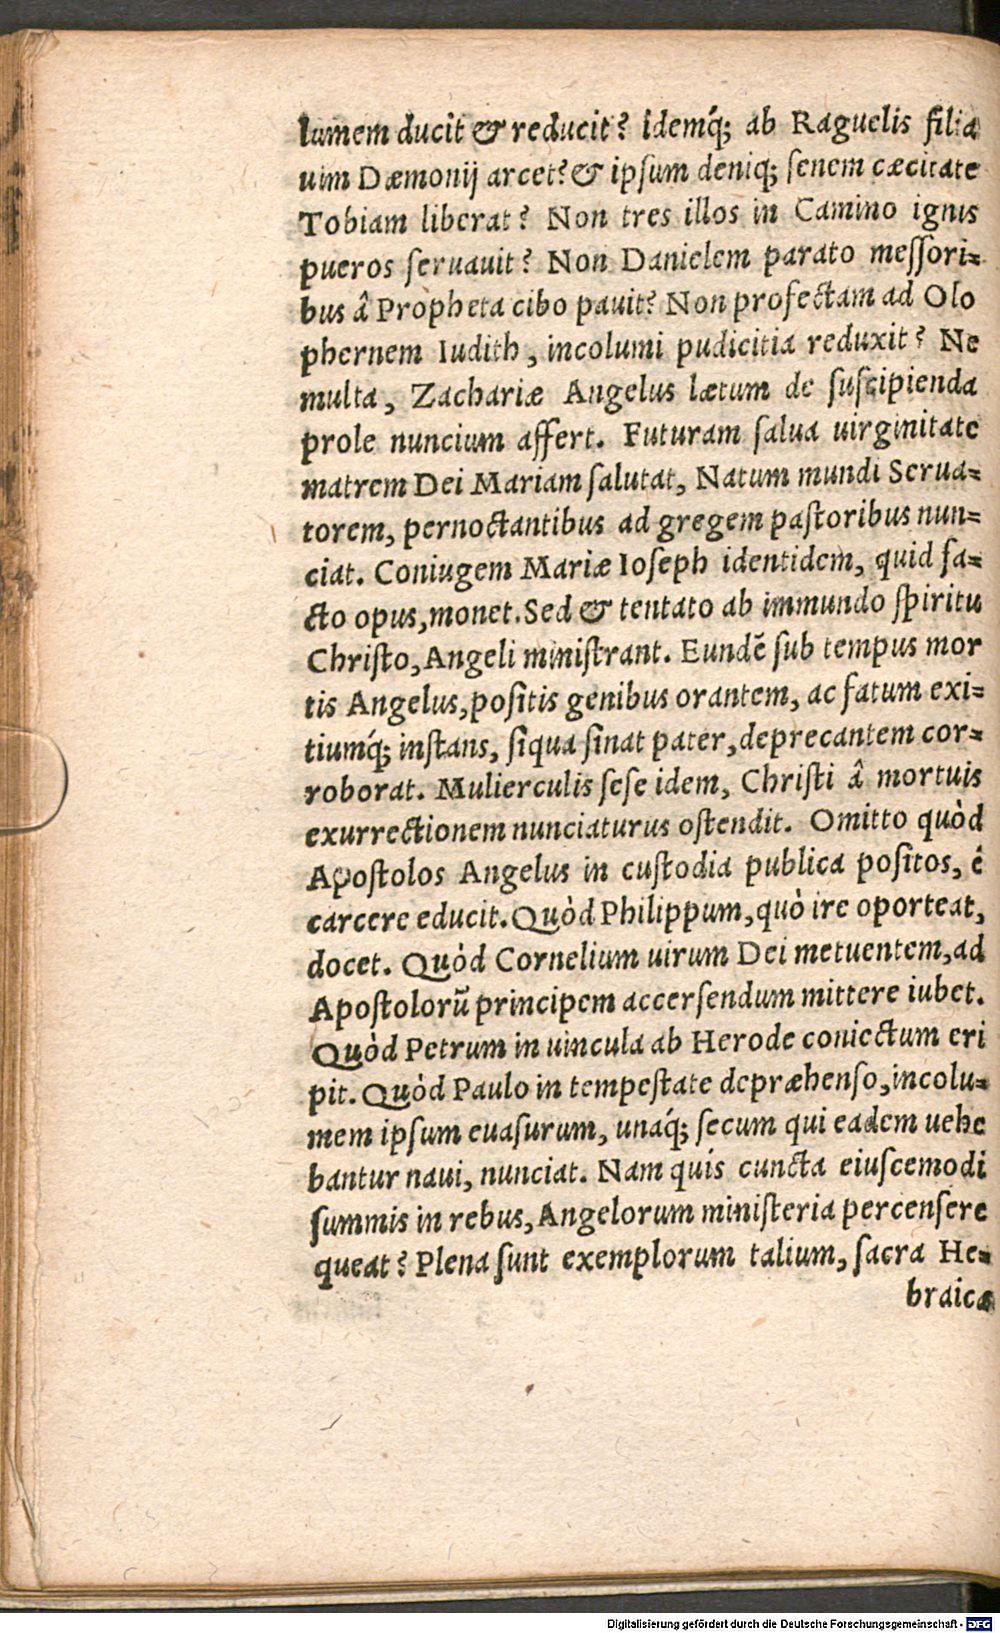 lumem ducit & reducit? idemq́; ab Raguelis filia
uim Dæmonij arcet? & ipsum deniq; senem cæcitate
Tobiam liberat? Non tres illos in Camino ignis
pueros seruauit? Non Danielem parato messori-
bus â Propheta cibo pauit? Non profectam ad Olo
phernem Iudith, incolumi pudicitia reduxit? Ne
multa, Zachariæ Angelus lætum de suscipienda
prole nuncium affert. Futuram salua uirginitate
matrem Dei Mariam salutat, Natum mundi Serua-
torem, pernoctantibus ad gregem pastoribus nun-
ciat. Coniugem Mariæ Ioseph identidem, quid fa-
cto opus, monet. Sed & tentato ab immundo spiritu
Christo, Angeli ministrant. Eundẽ sub tempus mor
tis Angelus, positis genibus orantem, ac fatum exi-
tiumq́; instans, siqua sinat pater, deprecantem cor-
roborat. Mulierculis sese idem, Christi â mortuis
exurrectionem nunciaturus ostendit. Omitto quòd
Apostolos Angelus in custodia publica positos, ê
carcere educit. Quòd Philippum, quò ire oporteat,
docet. Quòd Cornelium uirum Dei metuentem, ad
Apostolorũ principem accersendum mittere iubet.
Quòd Petrum in uincula ab Herode coniectum eri
pit. Quòd Paulo in tempestate depræhenso, incolu-
mem ipsum euasurum, unaq́; secum qui eadem uehe
bantur naui, nunciat. Nam quis cuncta eiuscemodi
summis in rebus, Angelorum ministeria percensere
queat? Plena sunt exemplorum talium, sacra He-
braica
Digitalisierung gefördert durch die Deutsche Forschungsgemeinschaft - DFG